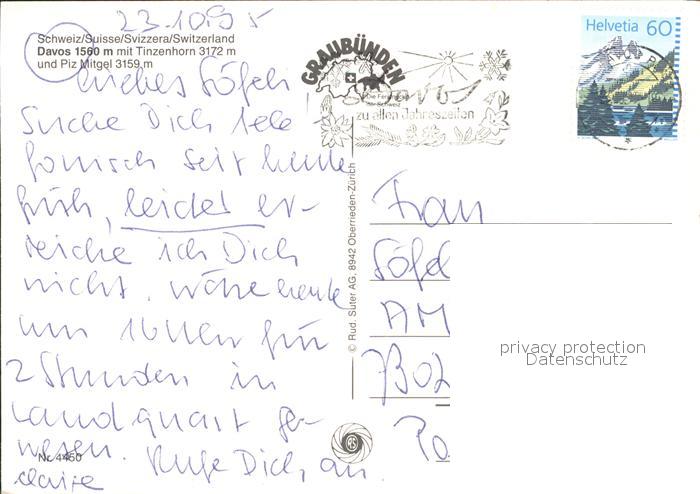 23.10.95
Schweiz/Suisse/Svizzera/Switzerland
Davos 1560 m mit Tinzenhorn 3172 m
und Piz Mitgel 3159 m
Liebes Göfeli
Suche Dich tele
fonisch seit heute
früh, leider er-
reiche ich Dich
nicht. wäre heute
um 16 Uhr für
2 Stunden in
Landquart ge-
wesen. Rufe Dich, an.
Claire
Nr. 4450
© Rud. Suter AG, 8942 Oberrieden-Zürich
GRAUBÜNDEN
Die Ferienecke
der Schweiz
zu allen Jahreszeiten
Helvetia 60
Frau
AM
Po
privacy protection
Datenschutz